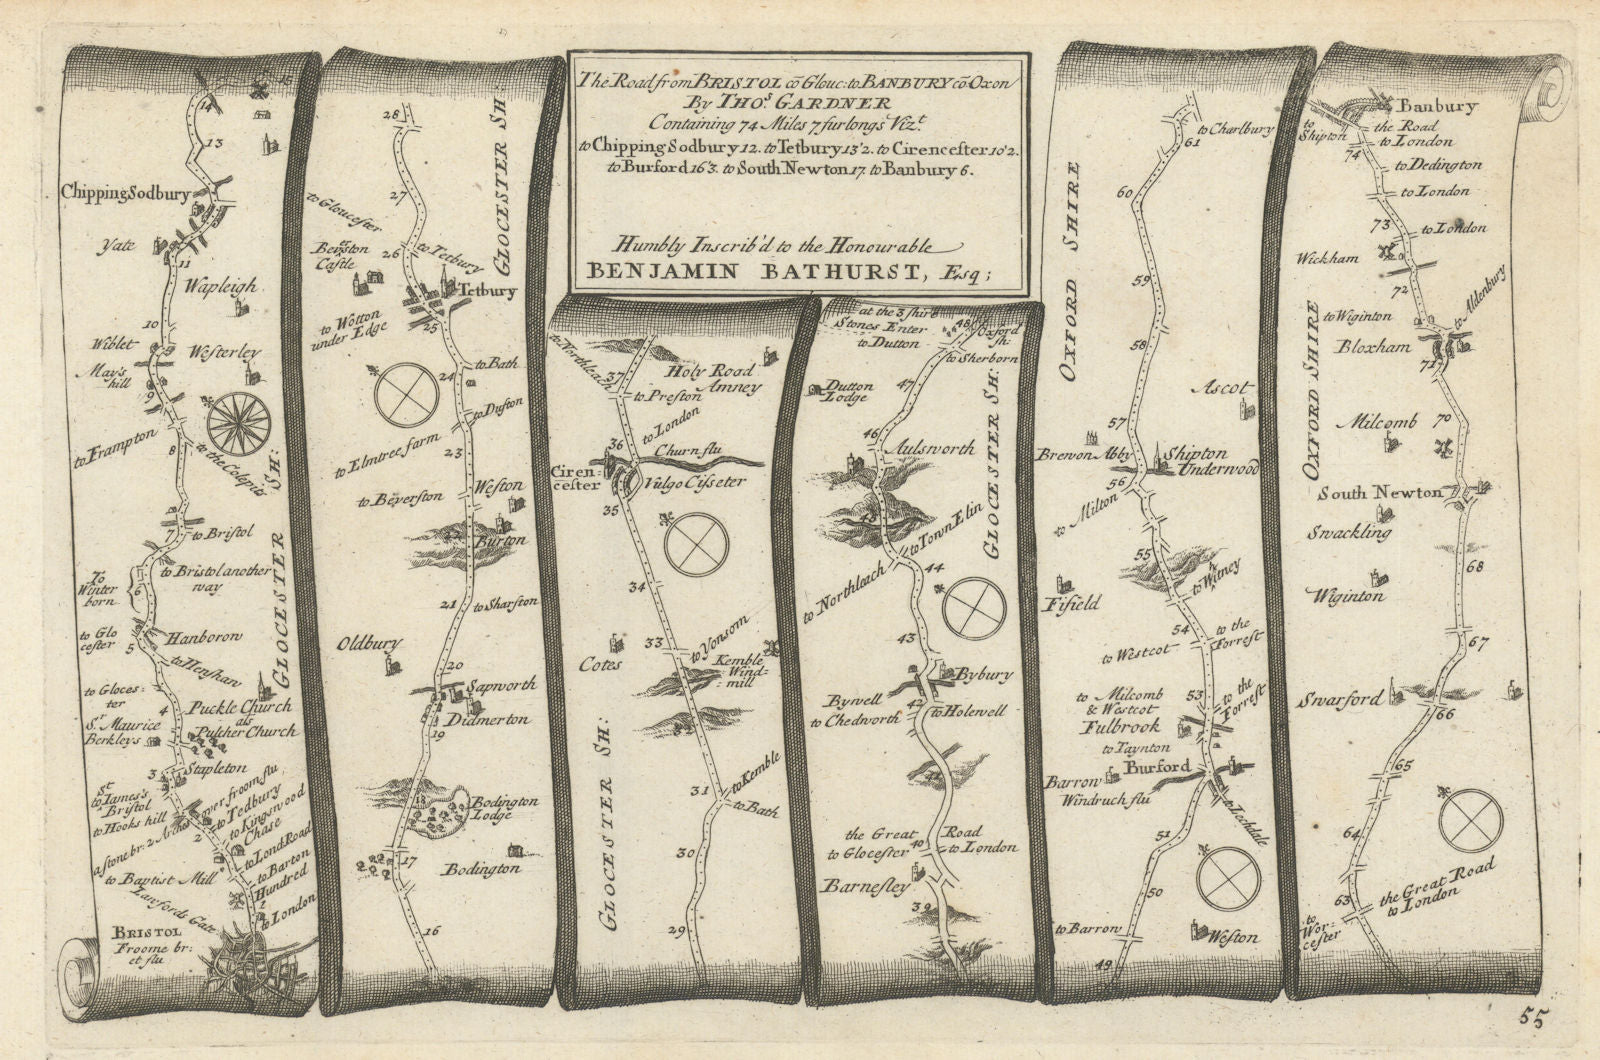 The Road from BRISTOL cõ Glouc: to BANBURY cõ Oxon
By THOˢ. GARDNER
Containing 74 Miles 7 furlongs Vizᵗ.
to Chipping Sodbury 12. to Tetbury 13'2. to Cirencester 10'2.
to Burford 16'3. to South Newton 17. to Banbury 6.
Humbly Inscrib'd to the Honourable
BENJAMIN BATHURST, Esq;
15
14
13
Chipping Sodbury
Yate
11
Wapleigh
10
Wiblet
Westerley
May's
hill
9
to Frampton
8
to the Colepits
GLOCESTER SH:
7
to Bristol
to Bristol another
way
To
Winter
born
6
to Glo
cester
5
Hanborow
to Henshaw
to Gloces=
ter
4
Puckle Church
als
Pulcher Church
Sʳ Maurice
Berkleys
3
Stapleton
to Sᵗ James's
Bristol
to Hooks hill
a stone br: 2 Arches over froom flu
2
to Tedbury
to Kingswood
Chase
to Lond Road
to Barton
Hundred
to Baptist Mill
1
to London
Lawfords Gate
BRISTOL
Froome br:
et flu
28
GLOCESTER SH:
27
to Gloucester
Beverston
Castle
26
to Tetbury
Tetbury
to Wotton
under Edge
25
to Bath
24
to Duston
to Elmtree farm
23
to Beverston
Weston
22
Burton
21
to Sharston
Oldbury
20
Sapworth
Didmerton
19
18
Bodington
Lodge
17
Bodington
16
to Northleach
37
Holy Road
Amney
to Preston
to London
36
Churn flu
Ciren=
cester
Vulgo Cisseter
35
34
33
to Yonsom
Cotes
Kemble
Wind=
mill
32
GLOCESTER SH:
to Kemble
31
to Bath
30
29
at the 3 shire
Stones Enter
48
Oxford
sh:
to Dutton
to Sherborn
Dutton
Lodge
47
46
Aulsworth
GLOCESTER SH:
45
to Town Elin
to Northleach
44
43
Bybury
Bywell
42
to Chedworth
to Holewell
41
the Great Road
to Glocester
40
to London
Barnesley
39
to Charlbury
61
OXFORD SHIRE
60
59
58
Ascot
57
Brewon Abby
Shipton
Underwood
56
to Milton
55
to Witney
Fifield
54
to the
Forrest
to Westcot
to Milcomb
& Westcot
53
to the
Forrest
Fulbrook
to Taynton
Burford
Barrow
Windruch flu
to Lechdale
51
50
to Barrow
Weston
49
Banbury
to
Shipton
the Road
to London
74
to Dedington
to London
73
to London
Wickham
72
to Aldenbury
to Wiginton
Bloxham
71
OXFORD SHIRE
Milcomb
70
South Newton
Swackling
68
Wiginton
67
Swarford
66
65
64
the Great Road
to London
63
to
Wor=
cester
55